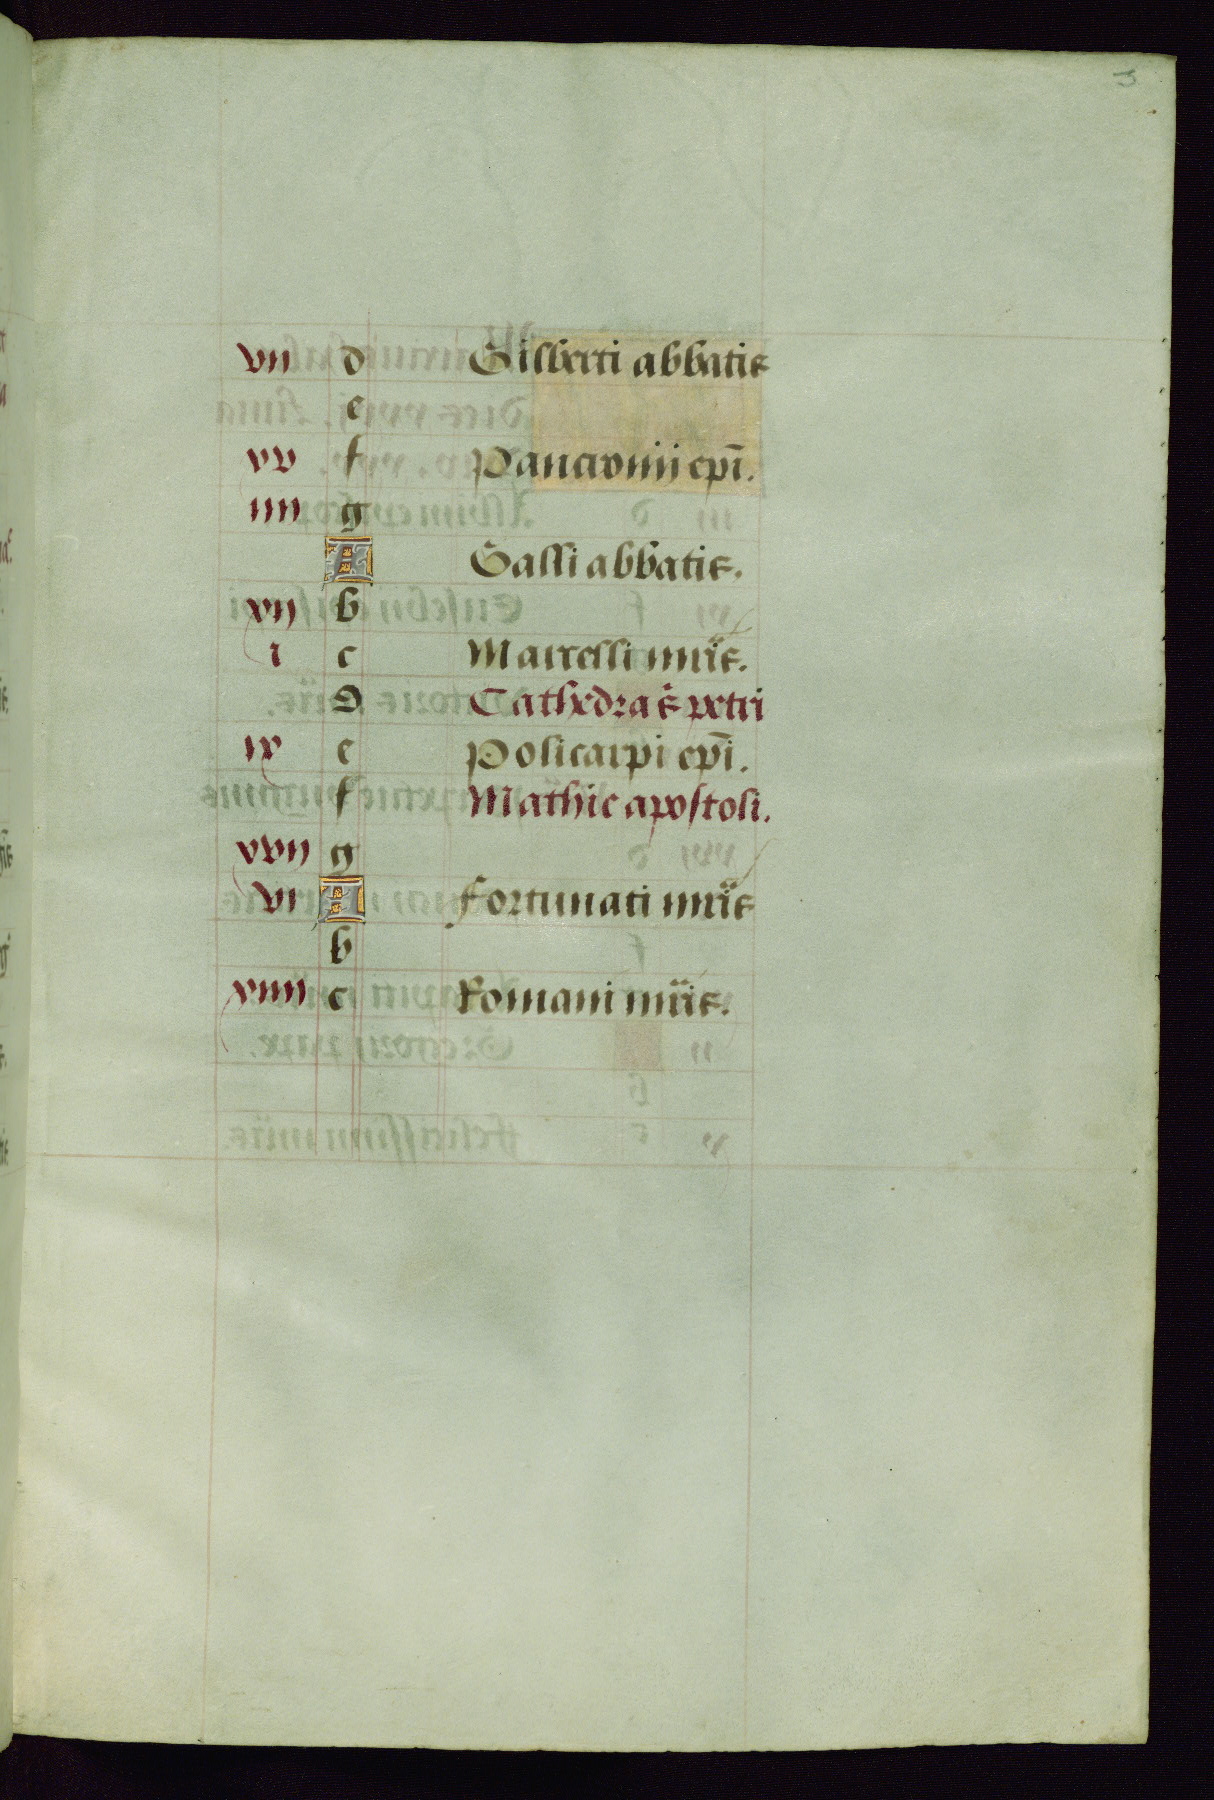 3
vii d Gilberti abbatis
e
xv f Pancronij ep̄i.
iiii g
A Galli abbatis.
xij b
i c Marcelli mr̄is.
D Cathedra s̄ petri
ix e Policarpi ep̄i.
f Mathie apostoli.
xvij g
vi A Fortunati mr̄is
b
xiiii c Romani mr̄is.